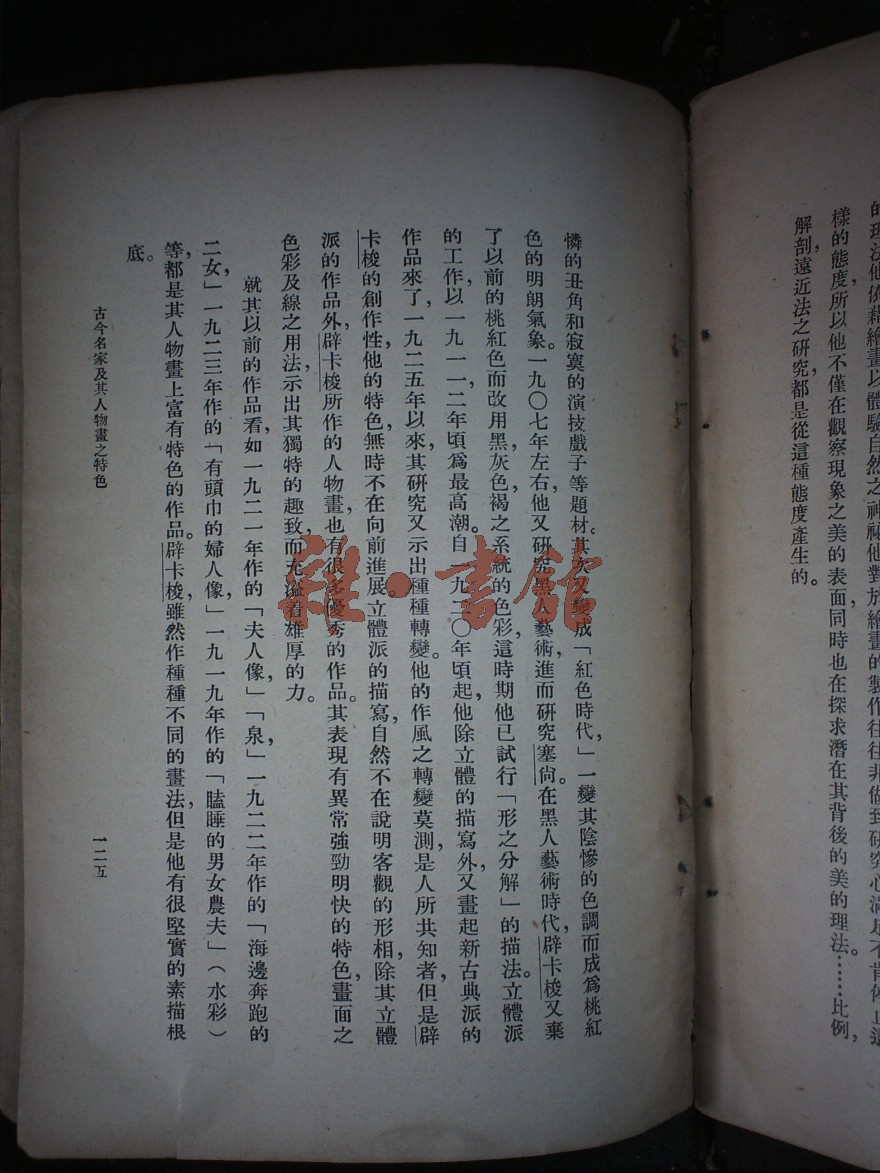 的理法他依藉繪畫以體驗自然之神祕他對於繪畫的製作往往非做到研究心滿足不肯休止這
樣的態度所以他不僅在觀察現象之美的表面同時也在探求潛在其背後的美的理法。……比例，
解剖遠近法之研究都是從這種態度產生的。
憐的丑角和寂寞的演技戲子等題材。其次又變成「紅色時代，」一變其陰慘的色調而成爲桃紅
色的明朗氣象。一九〇七年左右，他又研究黑人藝術，進而研究塞尙。在黑人藝術時代，辟卡梭又棄
了以前的桃紅色而改用黑，灰色，褐之系統的色彩，這時期他已試行「形之分解」的描法。立體派
的工作，以一九一一，二年頃爲最高潮。自一九二〇年頃起，他除立體的描寫外，又畫起新古典派的
作品來了，一九二五年以來，其研究又示出種種轉變。他的作風之轉變莫測，是人所共知者，但是辟
卡梭的創作性，他的特色，無時不在向前進展，立體派的描寫，自然不在說明客觀的形相，除其立體
派的作品外，辟卡梭所作的人物畫，也有很多優秀的作品。其表現有異常強勁明快的特色，畫面之
色彩及線之用法，示出其獨特的趣致，而充溢着雄厚的力。
就其以前的作品看，如一九二一年作的「夫人像，」「泉，」一九二二年作的「海邊奔跑的
二女，」一九二三年作的「有頭巾的婦人像，」一九一九年作的「瞌睡的男女農夫」（水彩）
等，都是其人物畫上富有特色的作品。辟卡梭，雖然作種種不同的畫法，但是他有很堅實的素描根
底。
古今名家及其人物畫之特色
一二五
雜·書館